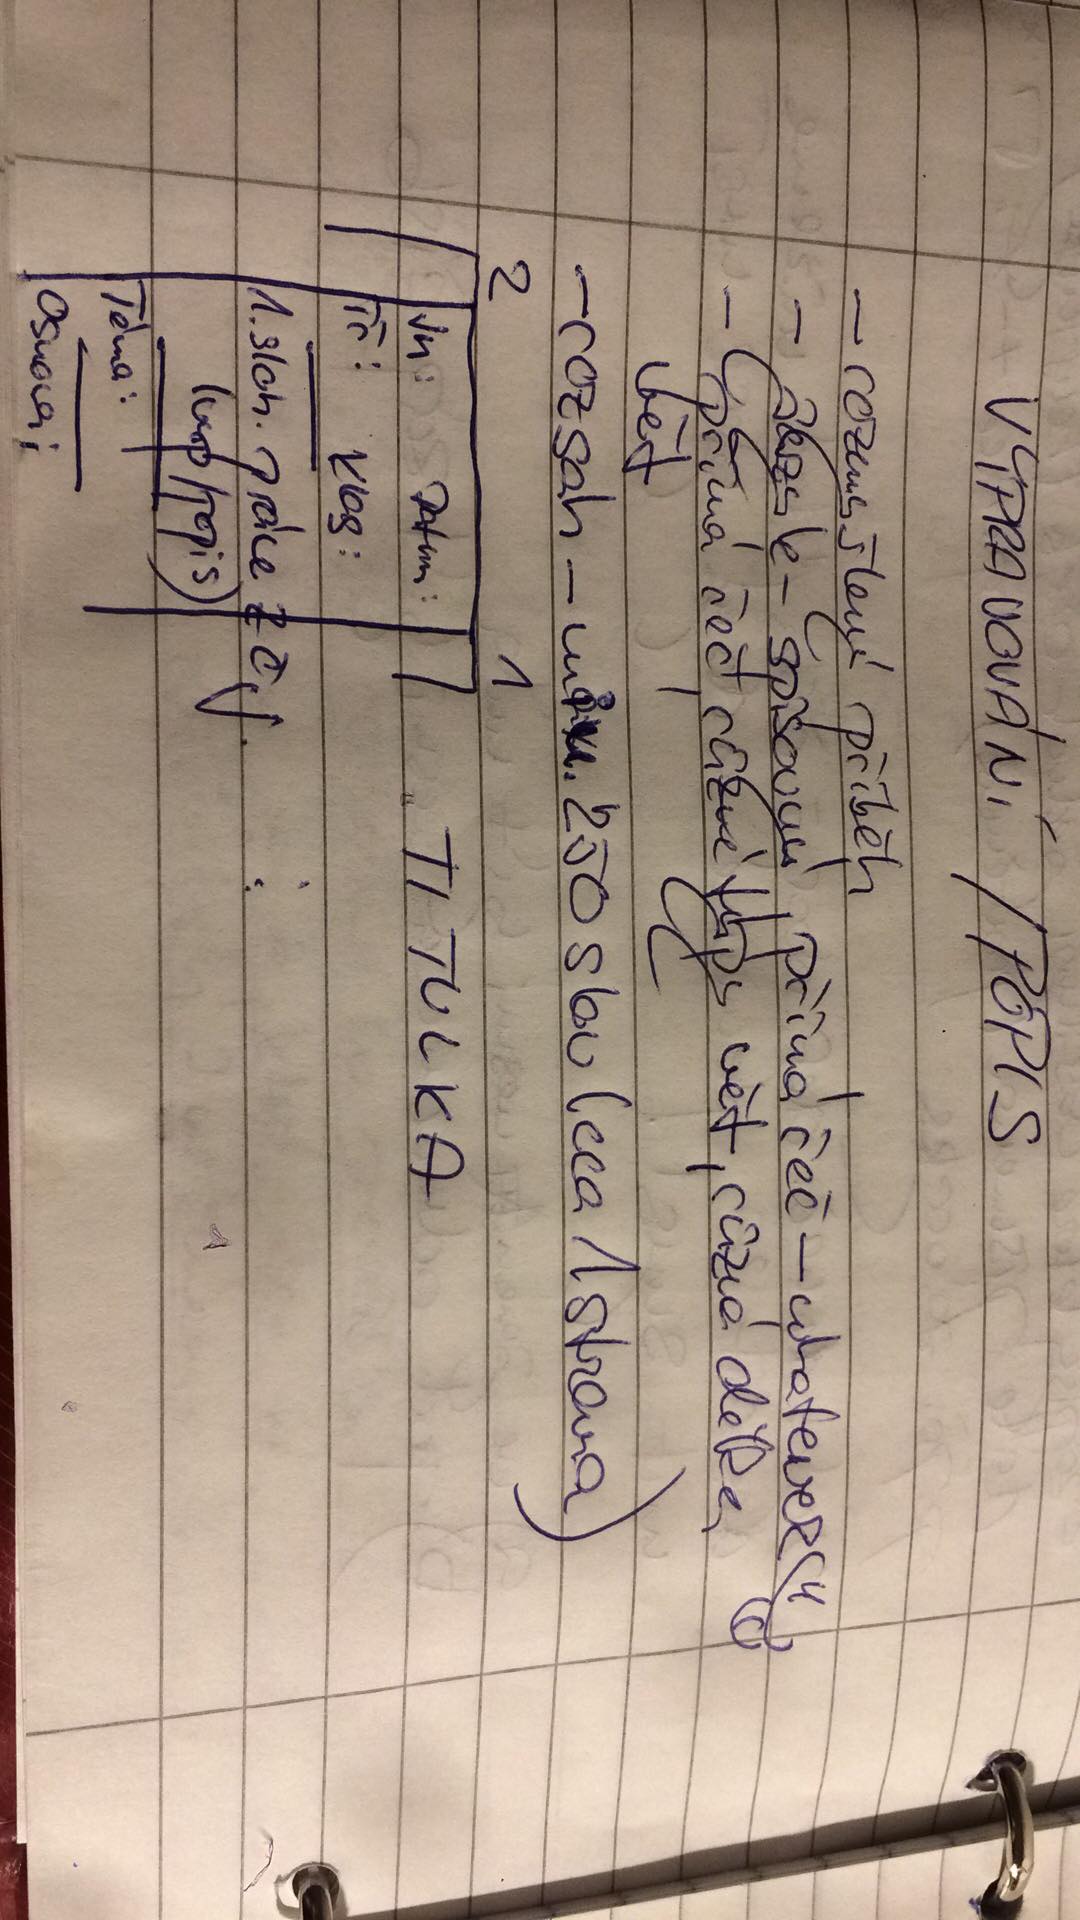 VYPRAVOVÁNÍ / POPIS
– rozmyšlený příběh
– jazyk – spisovný, přímá řeč –
– (přímá řeč, různé typy vět, různá délka
vět)
– rozsah – min. 250 slov (cca 1 strana)
2 1
Jm: Datum: TITULKA
Tř: Klas:
1. sloh. práce z čj.
(vyp/popis)
Téma:
Osnova: